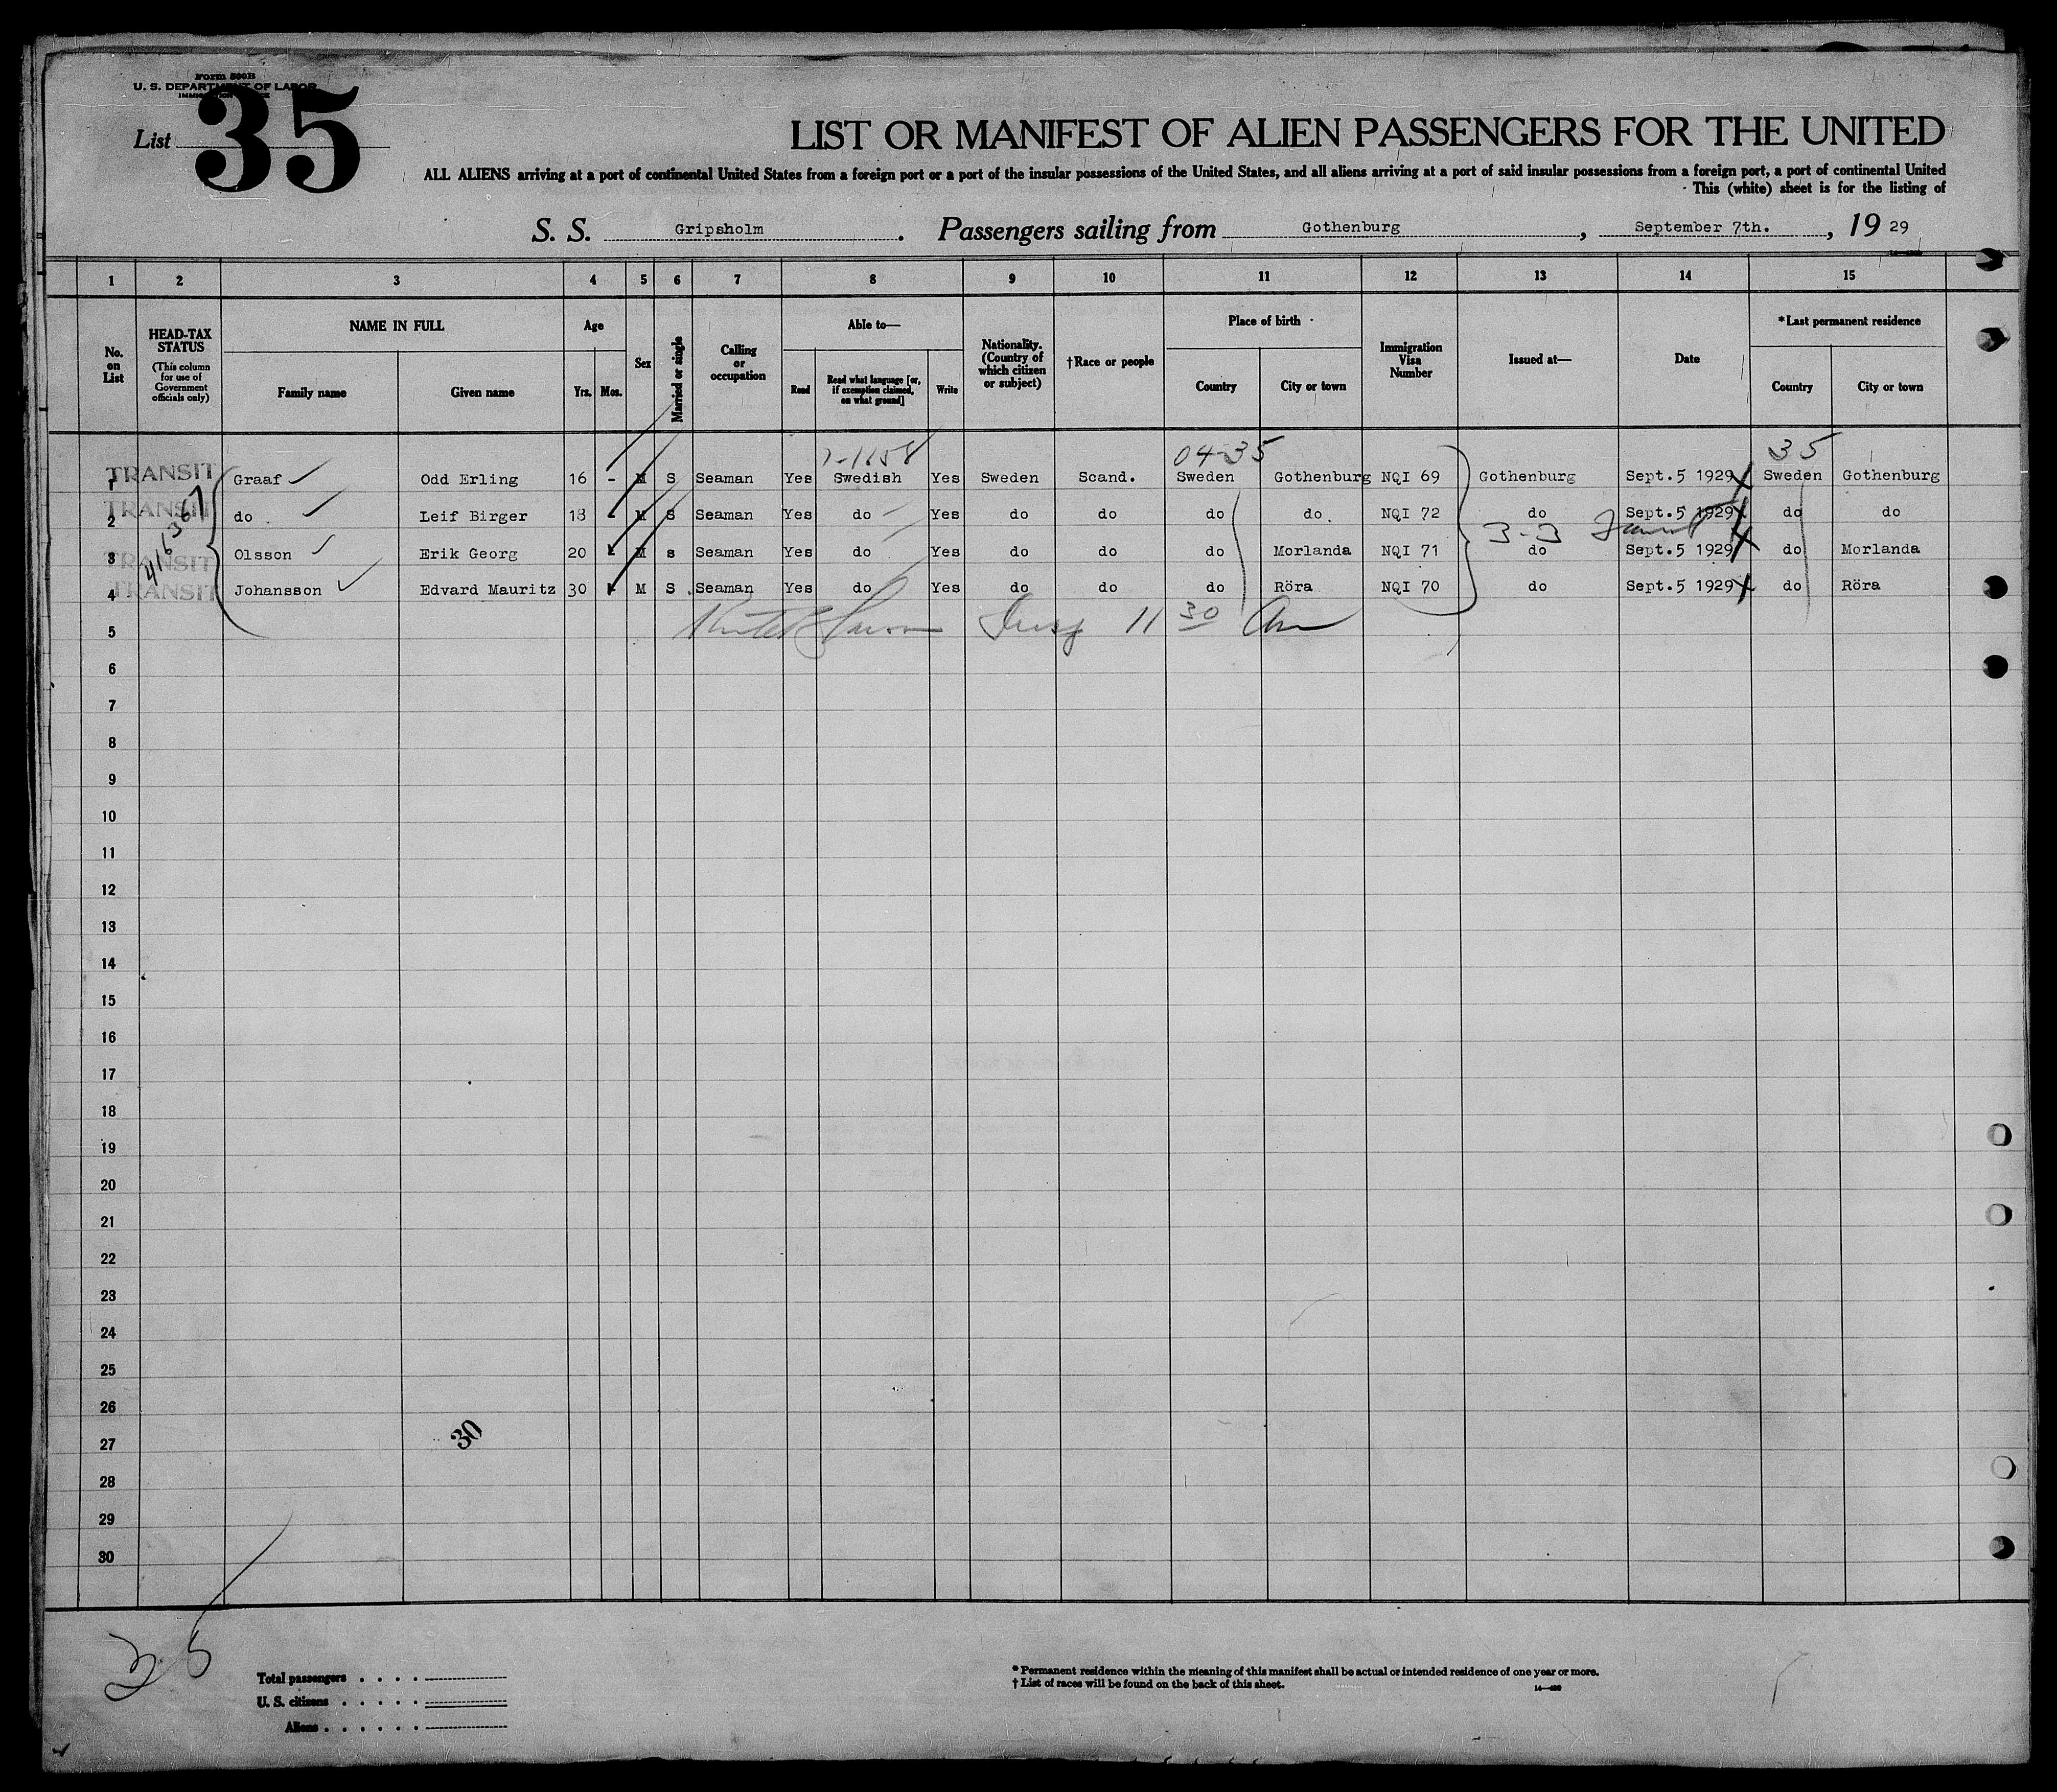 Form 500B
U. S. DEPARTMENT OF LABOR
IMMIGRATION SERVICE
List 35
LIST OR MANIFEST OF ALIEN PASSENGERS FOR THE UNITED
ALL ALIENS arriving at a port of continental United States from a foreign port or a port of the insular possessions of the United States, and all aliens arriving at a port of said insular possessions from a foreign port, a port of continental United
This (white) sheet is for the listing of
S. S. Gripsholm. Passengers sailing from Gothenburg, September 7th., 19 29
1 2 3 4 5 6 7 8 9 10 11 12 13 14 15
No. on List
HEAD-TAX STATUS (This column for use of Government officials only)
NAME IN FULL
Family name Given name
Age
Yrs. Mos.
Sex
Married or single
Calling or occupation
Able to—
Read Read what language [or, if exemption claimed, on what ground] Write
Nationality. (Country of which citizen or subject)
†Race or people
Place of birth
Country City or town
Immigration Visa Number
Issued at—
Date
*Last permanent residence
Country City or town
04-35 35
1 TRANSIT Graaf Odd Erling 16 - M S Seaman Yes Swedish Yes Sweden Scand. Sweden Gothenburg NQI 69 Gothenburg Sept.5 1929 Sweden Gothenburg
2 TRANSIT do Leif Birger 18 - M S Seaman Yes do Yes do do do do NQI 72 do Sept.5 1929 do do
3-3
3 TRANSIT Olsson Erik Georg 20 M s Seaman Yes do Yes do do do Morlanda NQI 71 do Sept.5 1929 do Morlanda
4 TRANSIT Johansson Edvard Mauritz 30 M S Seaman Yes do Yes do do do Röra NQI 70 do Sept.5 1929 do Röra
5 Insp 11 30 Am
6
7
8
9
10
11
12
13
14
15
16
17
18
19
20
21
22
23
24
25
26
27 30
28
29
30
35
Total passengers
U. S. citizens
Aliens
* Permanent residence within the meaning of this manifest shall be actual or intended residence of one year or more.
† List of races will be found on the back of this sheet.